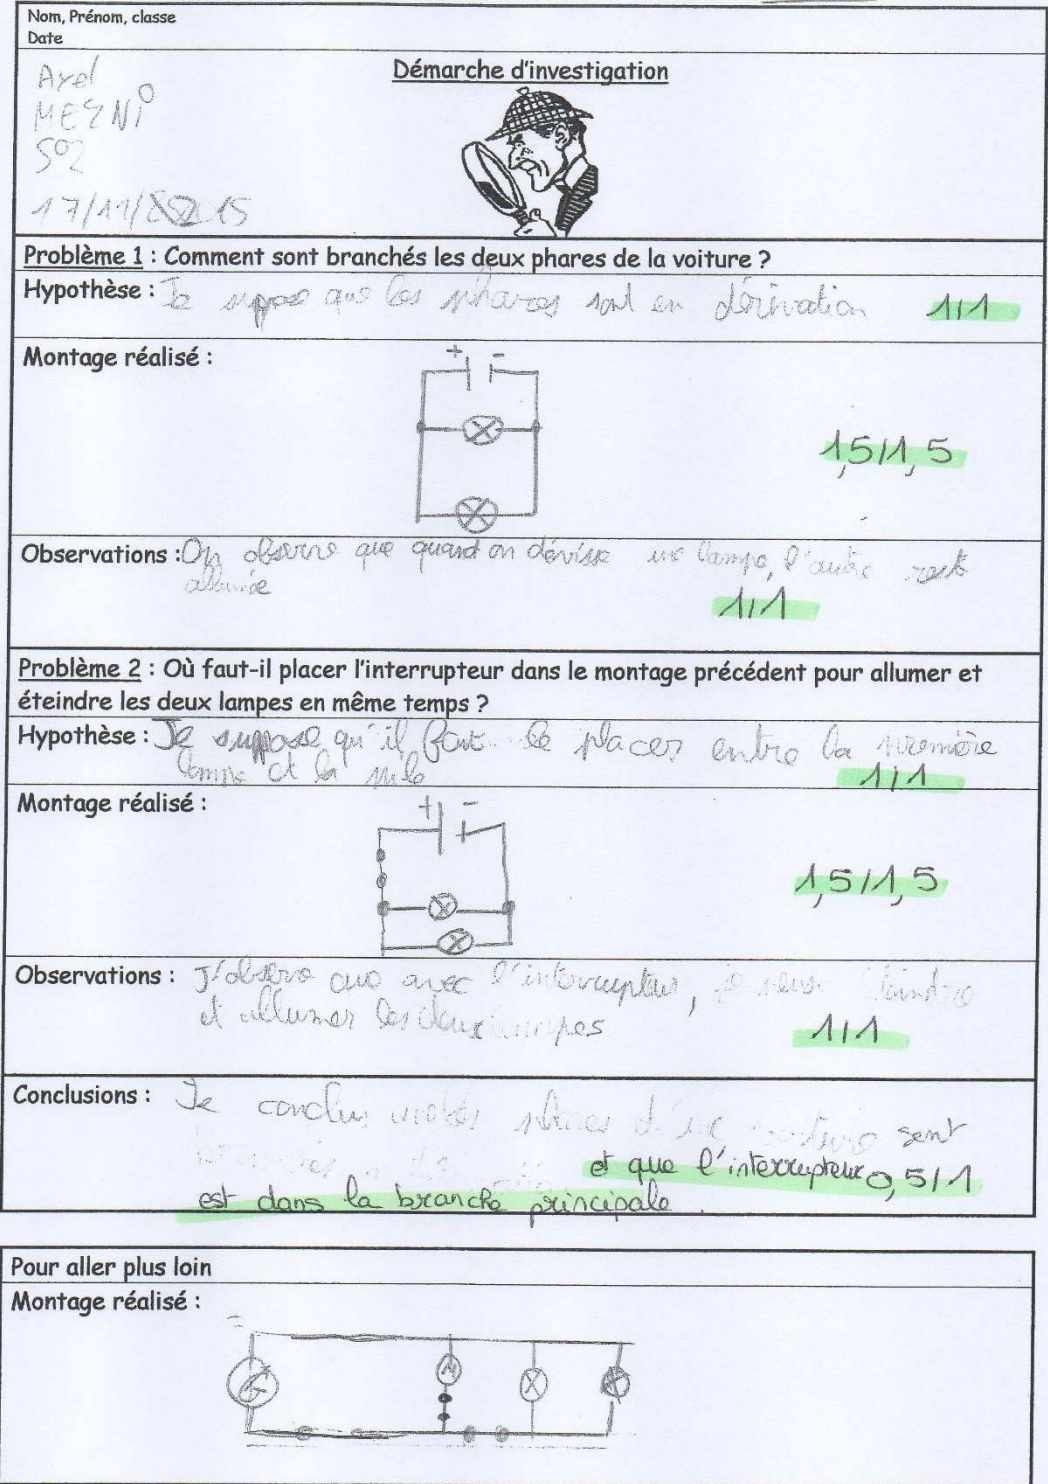 Nom, Prénom, classe
Date
Axel
MEZNI
502
17/11/ 15
Démarche d'investigation
Problème 1 : Comment sont branchés les deux phares de la voiture ?
Hypothèse : Je suppose que les phares sont en dérivation 1/1
Montage réalisé :
+ -
1,5/1,5
Observations : On observe que quand on dévisse une lampe, l'autre reste
allumée
1/1
Problème 2 : Où faut-il placer l'interrupteur dans le montage précédent pour allumer et
éteindre les deux lampes en même temps ?
Hypothèse : Je suppose qu'il faut le placer entre la première
lampe et la pile
1/1
Montage réalisé :
+ -
1,5/1,5
Observations : J'observe que avec l'interrupteur, je peux éteindre
et allumer les deux lampes
1/1
Conclusions : Je conclus les phares d'une voiture sont
et que l'interrupteur 0,5/1
est dans la branche principale.
Pour aller plus loin
Montage réalisé :
G
M